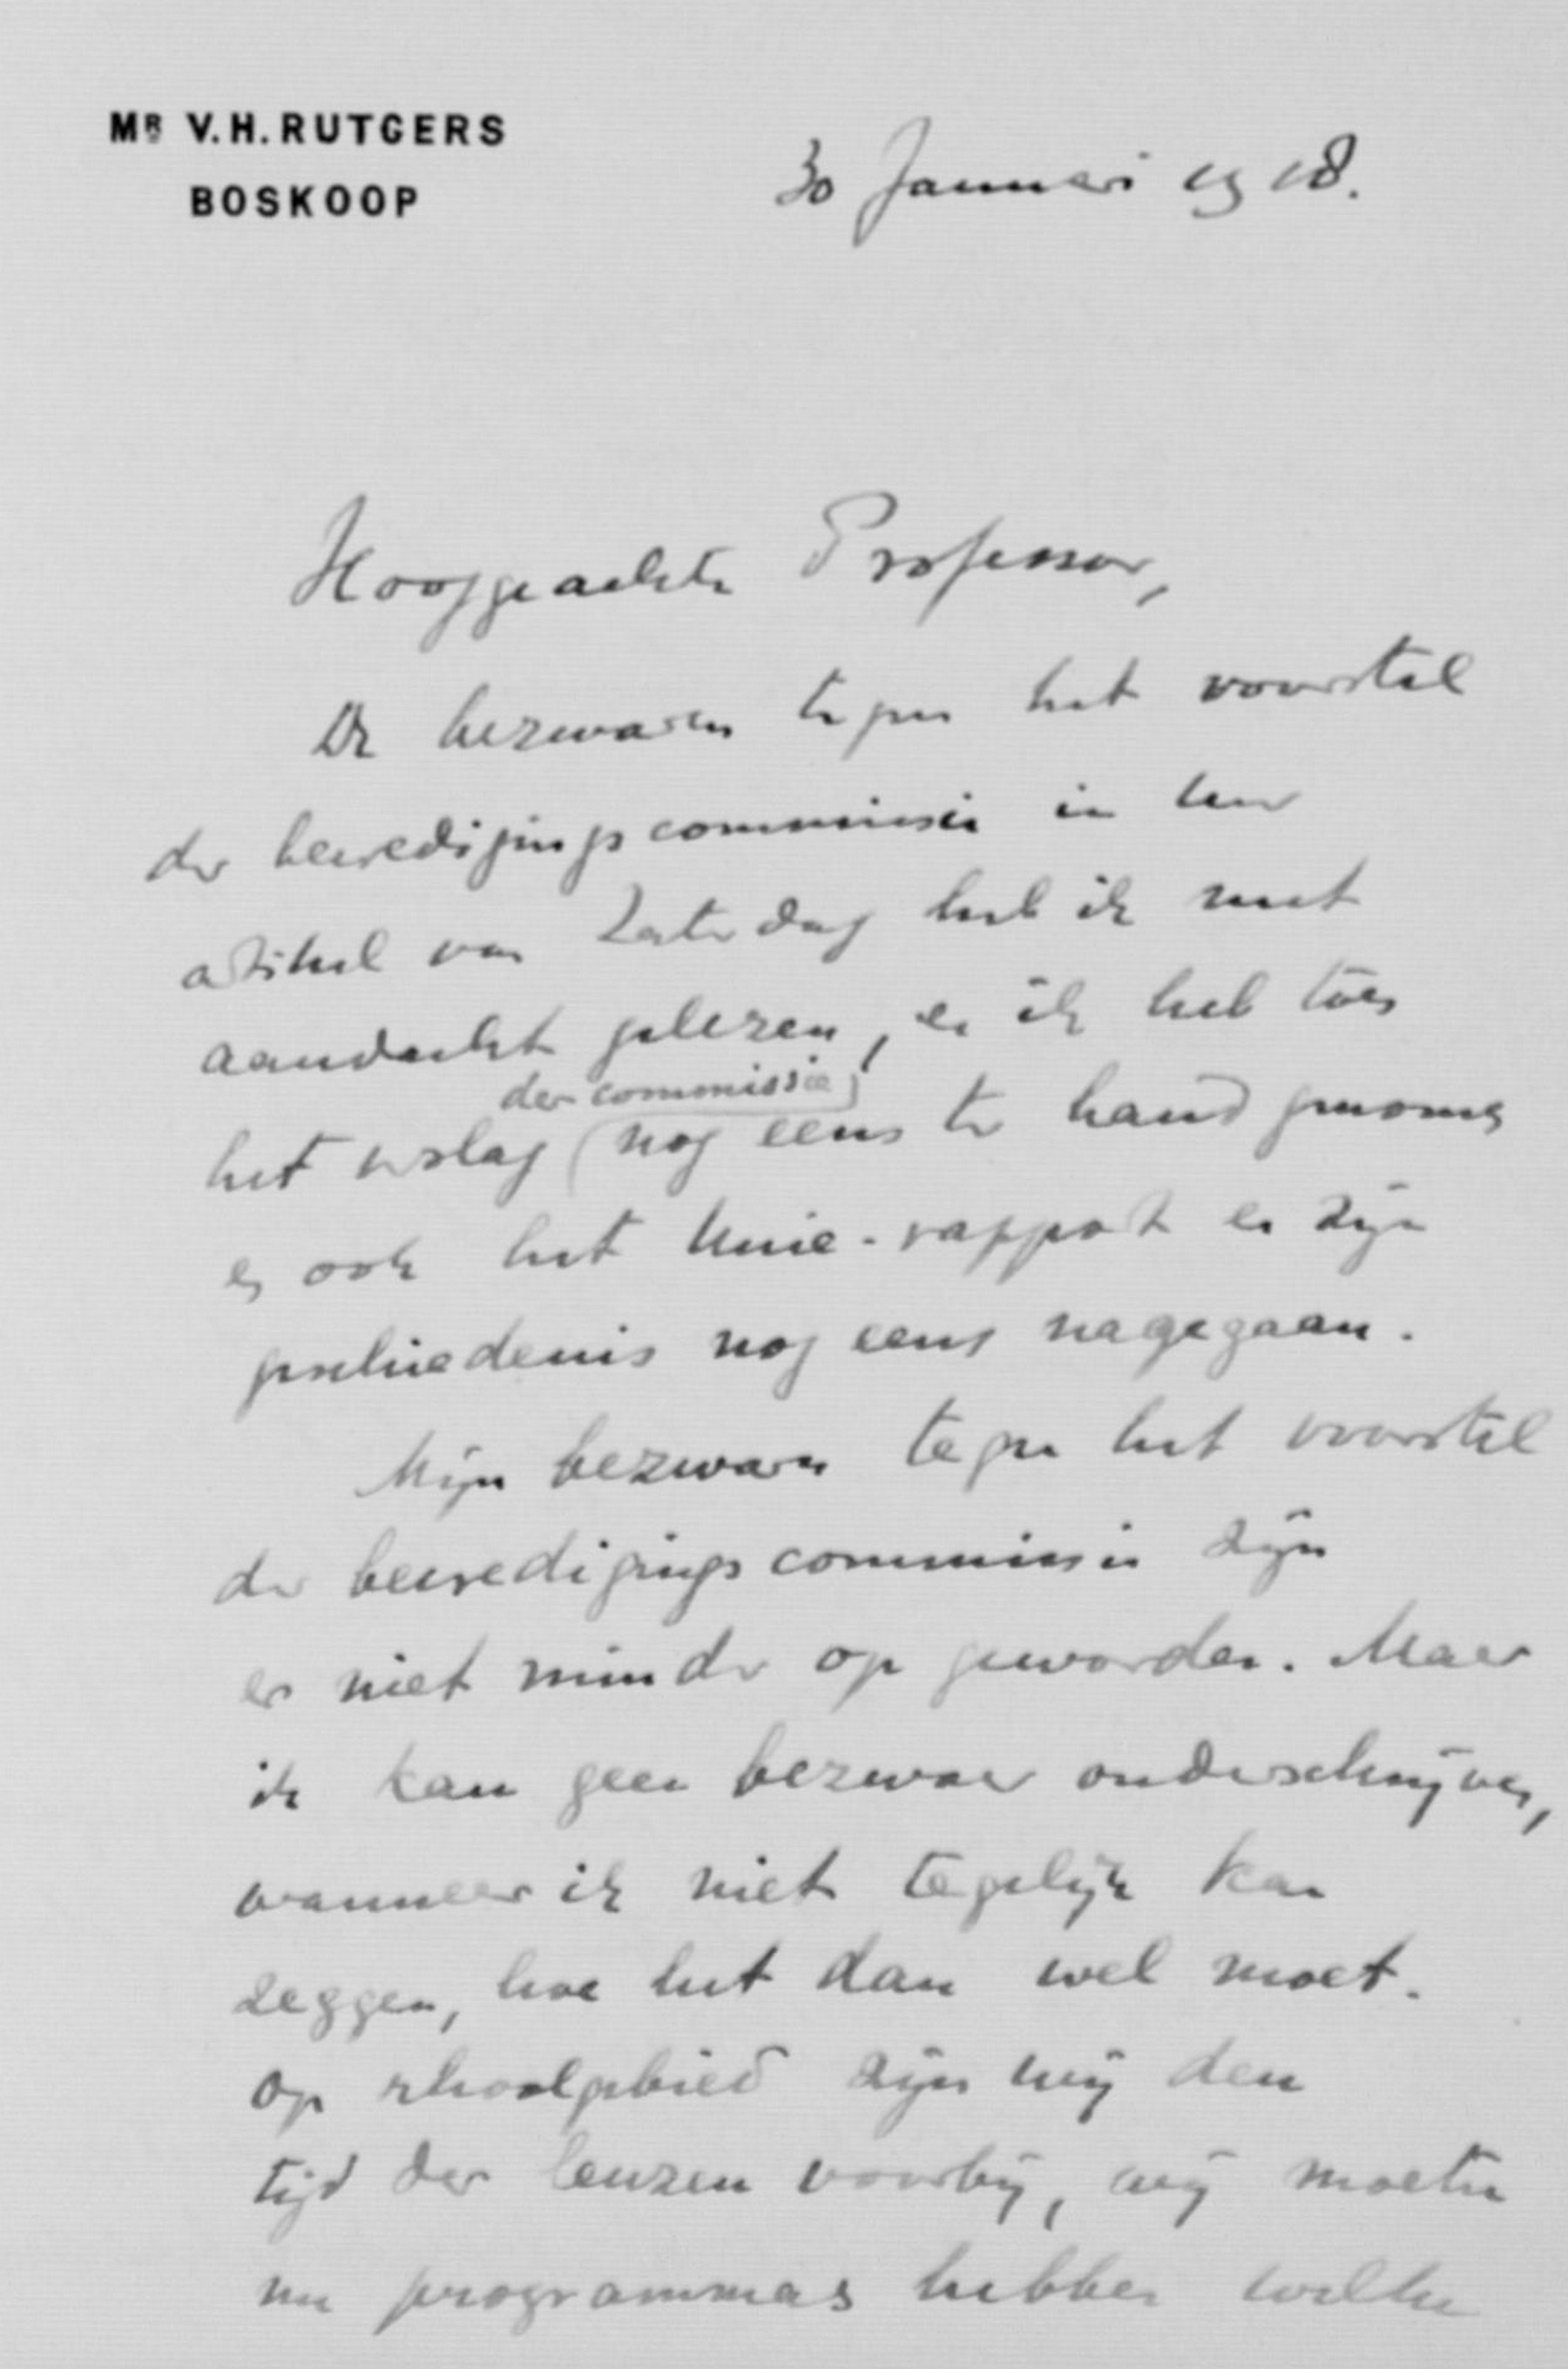 MR V.H. RUTGERS
BOSKOOP
30 Januari 1918.
Hooggeachte Professor,
De bezwaren tegen het voorstel
der bevredigingscommissie in uw
artikel van Zaterdag heb ik met
aandacht gelezen, en ik heb toen
der commissie
het verslag nog eens ter hand genomen
en ook het Unie-rapport en zijn
geschiedenis nog eens nagegaan.
Mijn bezwaren tegen het voorstel
der bevredigingscommissie zijn
er niet minder op geworden. Maar
ik kan geen bezwaar onderschrijven,
wanneer ik niet tegelijk kan
zeggen, hoe het dan wel moet.
Op schoolgebied zijn wij den
tijd der leuzen voorbij, wij moeten
nu programmas hebben welke